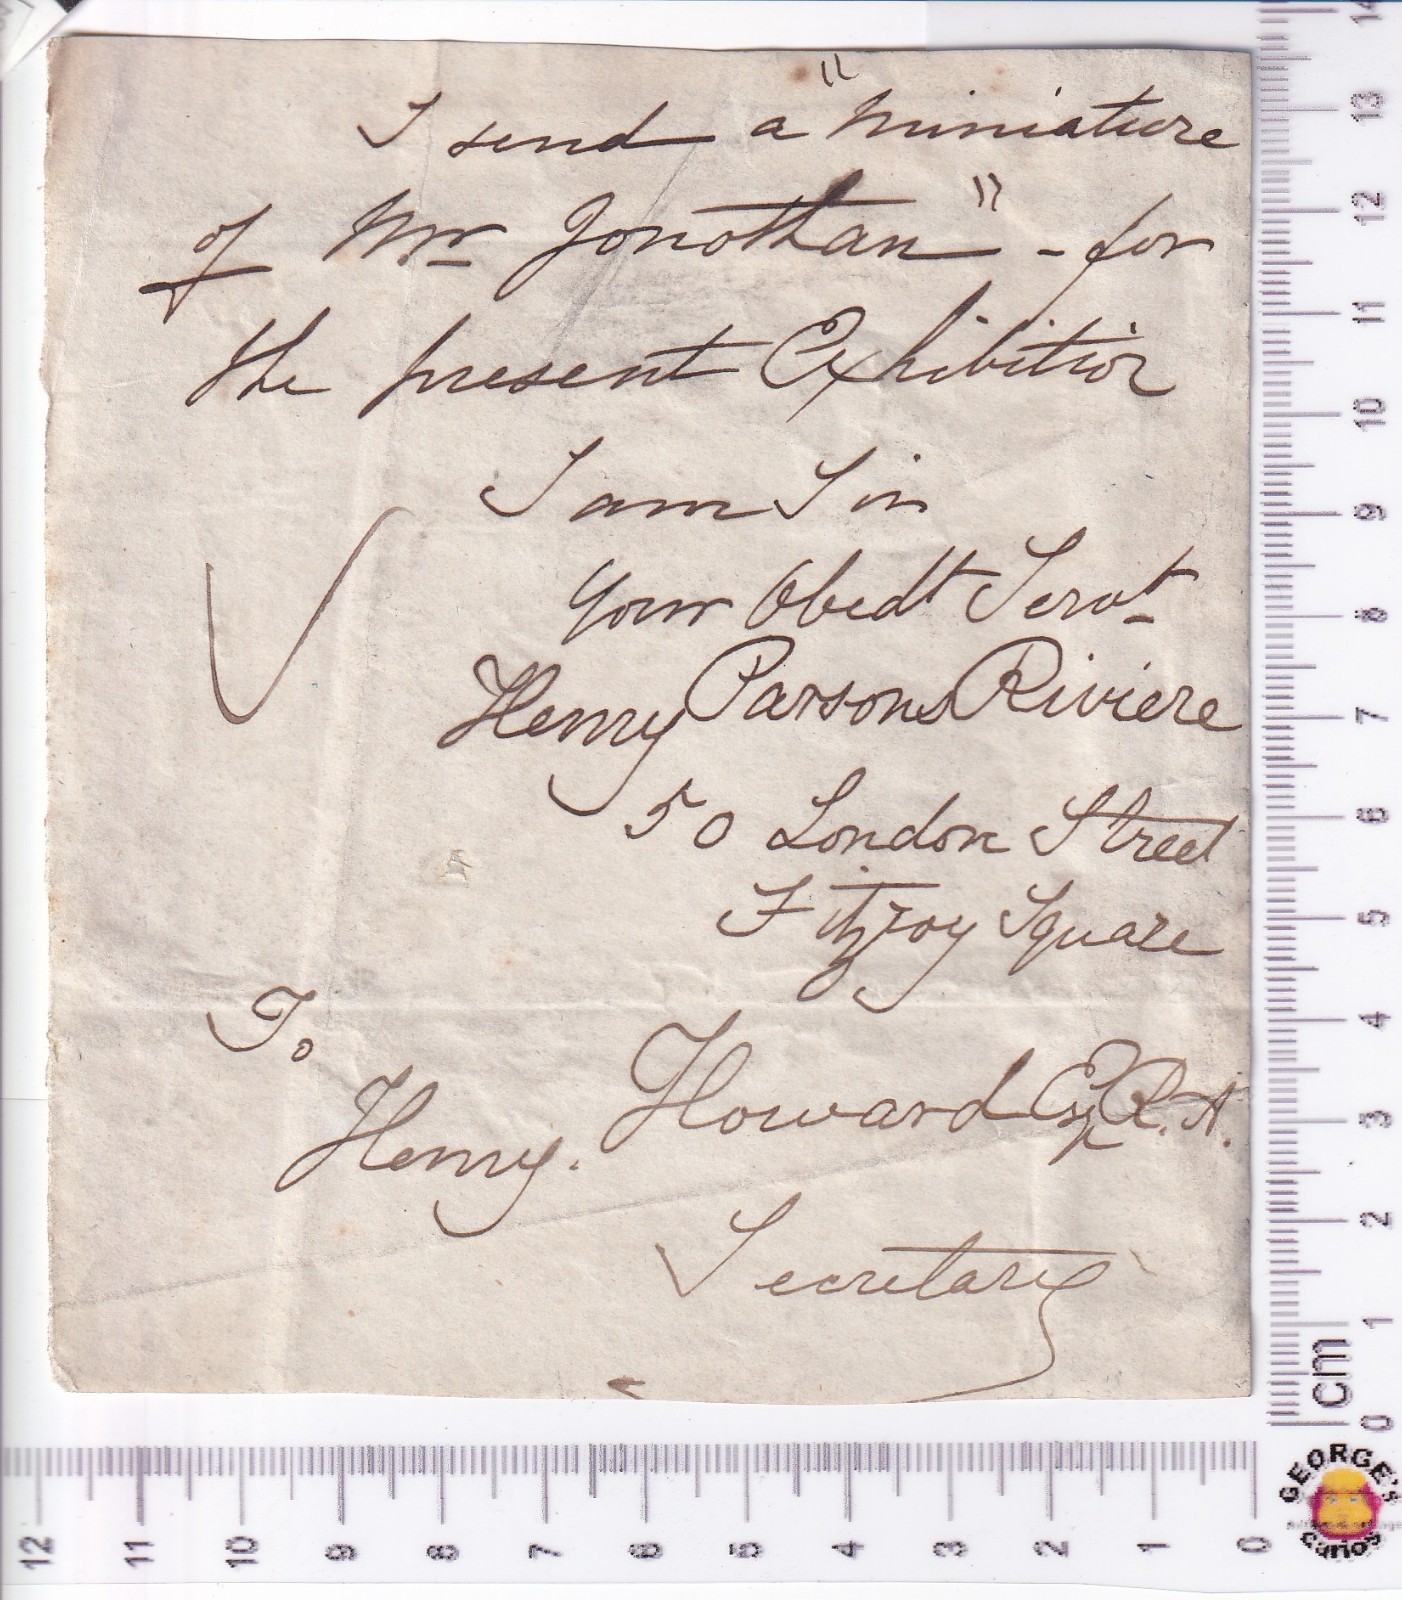 I send a "Miniature
of Mr Jonothan" - for
the present Exhibition
I am Sir
Your Obedt Servt
Henry Parsons Riviere
50 London Street
Fitzroy Square
To
Henry. Howard Esqr R.A.
Secretary
14
13
12
11
10
9
8
7
6
5
4
3
2
1
cm
0
12 11 10 9 8 7 6 5 4 3 2 1 0
GEORGE's
curios